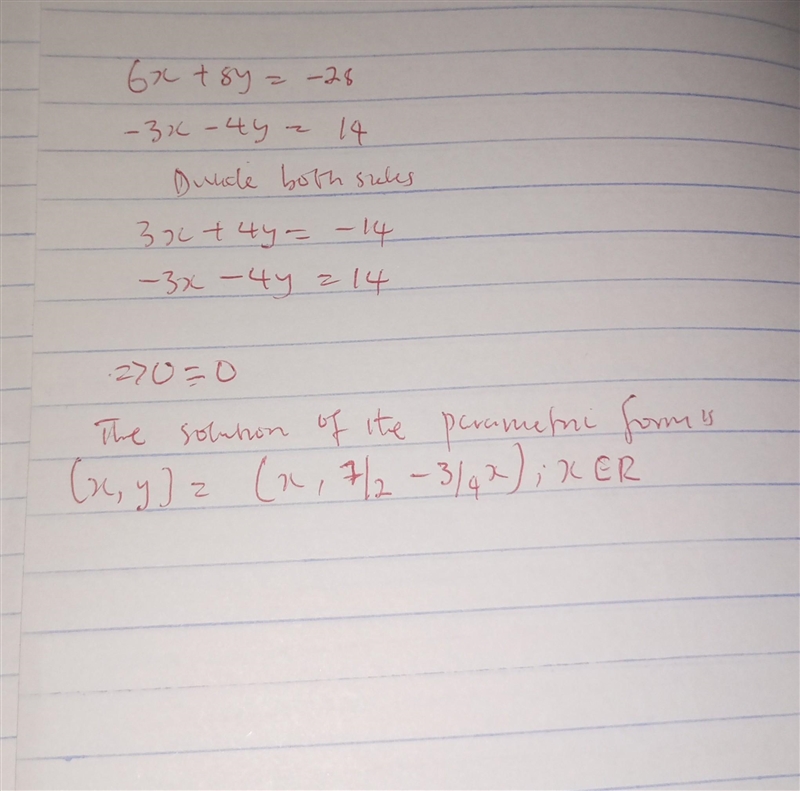 6x + 8y = -28
-3x - 4y = 14
Divide both sides
3x + 4y = -14
-3x - 4y = 14
=> 0 = 0
The solution of the parametric form is
(x, y) = (x, 7/2 - 3/4x); x ∈ R